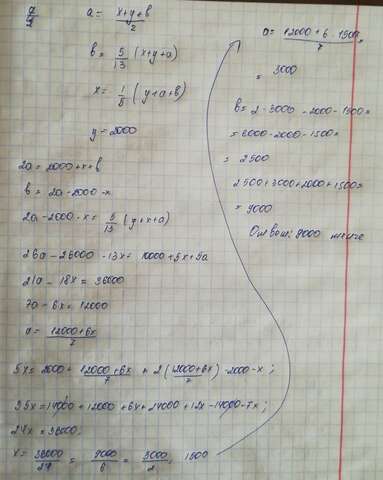 a = \frac{x+y+в}{2}
в = \frac{5}{13} (x+y+a)
x = \frac{1}{5} (y+a+в)
y = 2000
2a = 2000+x+в
в = 2a-2000-x
2a-2000-x = \frac{5}{13} (y+x+a)
26a-26000-13x = 10000+5x+5a
21a-18x = 36000
7a-6x = 12000
a = \frac{12000+6x}{7}
5x = 2000 + \frac{12000+6x}{7} + 2(\frac{12000+6x}{7}) -2000-x;
35x = 14000+12000+6x+24000+12x-14000-7x;
24x = 36000.
x = \frac{36000}{24} = \frac{9000}{6} = \frac{3000}{2} = 1500
a = \frac{12000+6·1500}{7} =
= 3000
в = 2·3000-2000-1500 =
= 6000-2000-1500 =
= 2500
2500+3000+2000+1500 =
= 9000